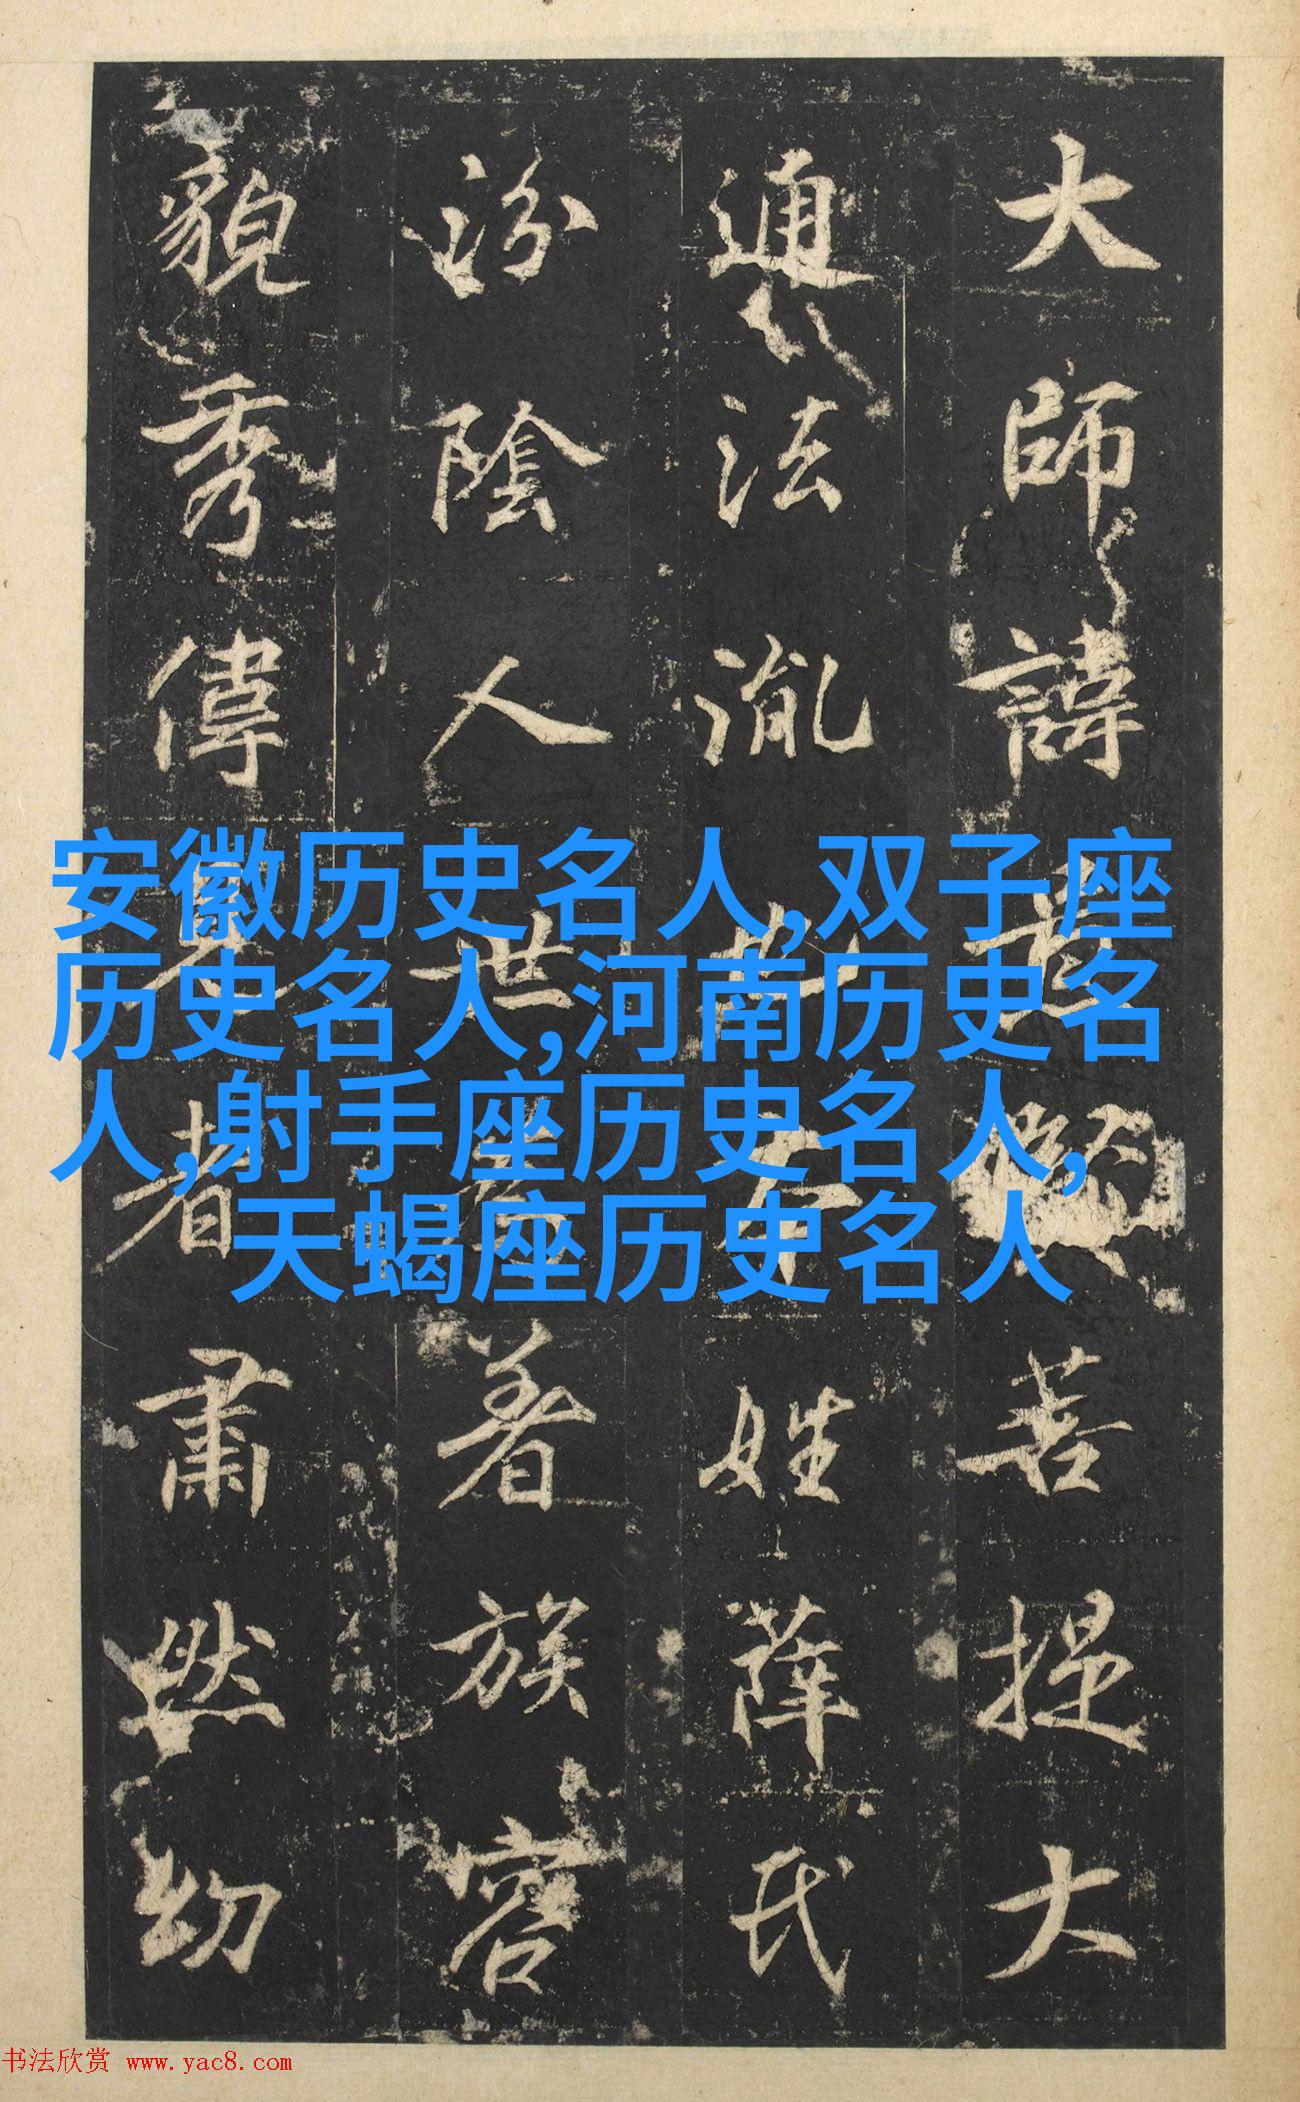 大師諱菩提大
通法胤也本姓薛氏
汾陰人世著族容
貌秀偉見者肅然幼
安徽历史名人,双子座
历史名人,河南历史名
人,射手座历史名人,
天蝎座历史名人
书法欣赏 www.yac8.com